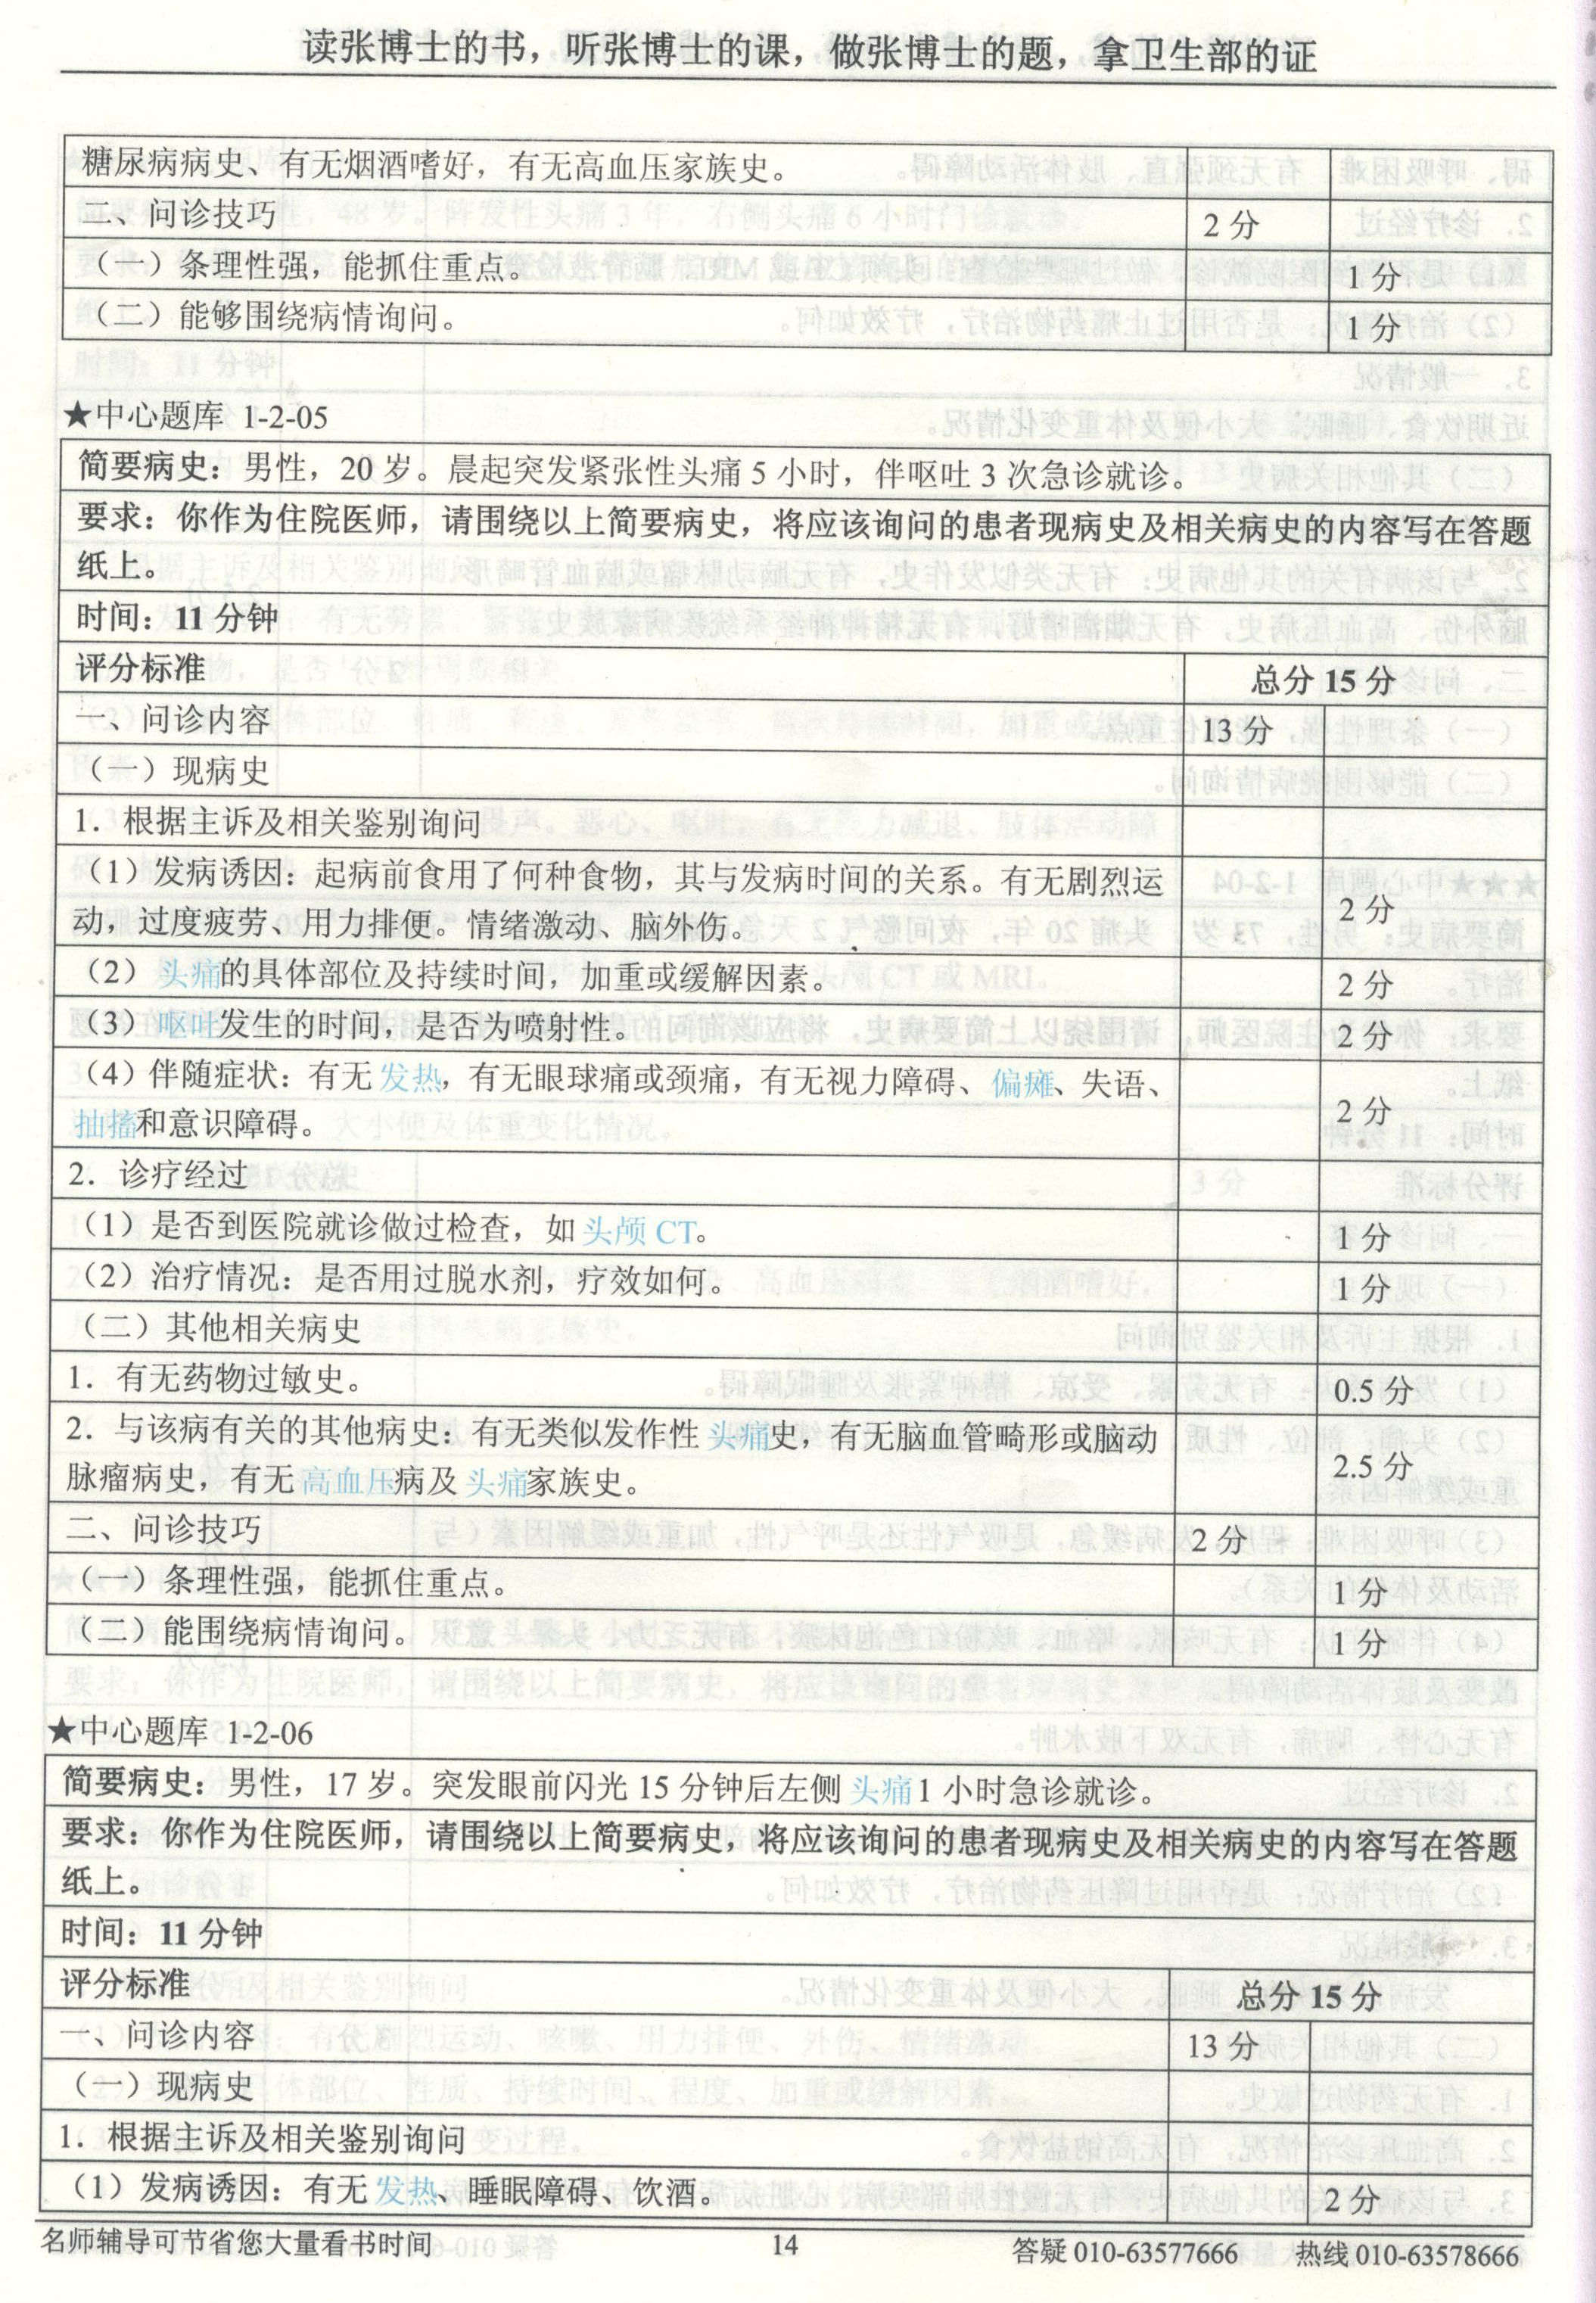 读张博士的书，听张博士的课，做张博士的题，拿卫生部的证
糖尿病病史、有无烟酒嗜好，有无高血压家族史。
二、问诊技巧 2 分
（一）条理性强，能抓住重点。 1 分
（二）能够围绕病情询问。 1 分
★中心题库 1-2-05
简要病史：男性，20 岁。晨起突发紧张性头痛 5 小时，伴呕吐 3 次急诊就诊。
要求：你作为住院医师，请围绕以上简要病史，将应该询问的患者现病史及相关病史的内容写在答题
纸上。
时间：11 分钟
评分标准 总分 15 分
一、问诊内容 13 分
（一）现病史
1．根据主诉及相关鉴别询问
（1）发病诱因：起病前食用了何种食物，其与发病时间的关系。有无剧烈运
动，过度疲劳、用力排便。情绪激动、脑外伤。 2 分
（2）头痛的具体部位及持续时间，加重或缓解因素。 2 分
（3）呕吐发生的时间，是否为喷射性。 2 分
（4）伴随症状：有无发热，有无眼球痛或颈痛，有无视力障碍、偏瘫、失语、
抽搐和意识障碍。 2 分
2．诊疗经过
（1）是否到医院就诊做过检查，如头颅 CT。 1 分
（2）治疗情况：是否用过脱水剂，疗效如何。 1 分
（二）其他相关病史
1．有无药物过敏史。 0.5 分
2．与该病有关的其他病史：有无类似发作性头痛史，有无脑血管畸形或脑动
脉瘤病史，有无高血压病及头痛家族史。 2.5 分
二、问诊技巧 2 分
（一）条理性强，能抓住重点。 1 分
（二）能围绕病情询问。 1 分
★中心题库 1-2-06
简要病史：男性，17 岁。突发眼前闪光 15 分钟后左侧头痛 1 小时急诊就诊。
要求：你作为住院医师，请围绕以上简要病史，将应该询问的患者现病史及相关病史的内容写在答题
纸上。
时间：11 分钟
评分标准 总分 15 分
一、问诊内容 13 分
（一）现病史
1．根据主诉及相关鉴别询问
（1）发病诱因：有无发热、睡眠障碍、饮酒。 2 分
名师辅导可节省您大量看书时间 14 答疑 010-63577666 热线 010-63578666